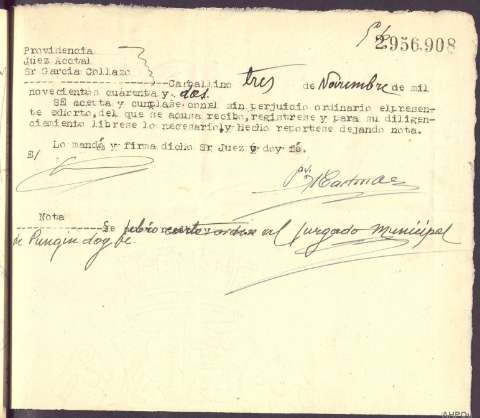 2.956.908
Providencia
Juez Acctal
Sr Garcia Collazo
Carballino tres de Noviembre de mil
novecientos cuarenta y dos.
SE acepta y cumplase con el sin perjuicio ordinario el presen-
te exhorto, del que se acusa recibo, registrese y para su diligen-
ciamiento librese lo necesario, y hecho reportese dejando nota.
Lo mandó y firma dicho Sr Juez y doy fé.
E/
Nota
Se libro al Juzgado Municipal
de Pungin doy fe
AHPOu